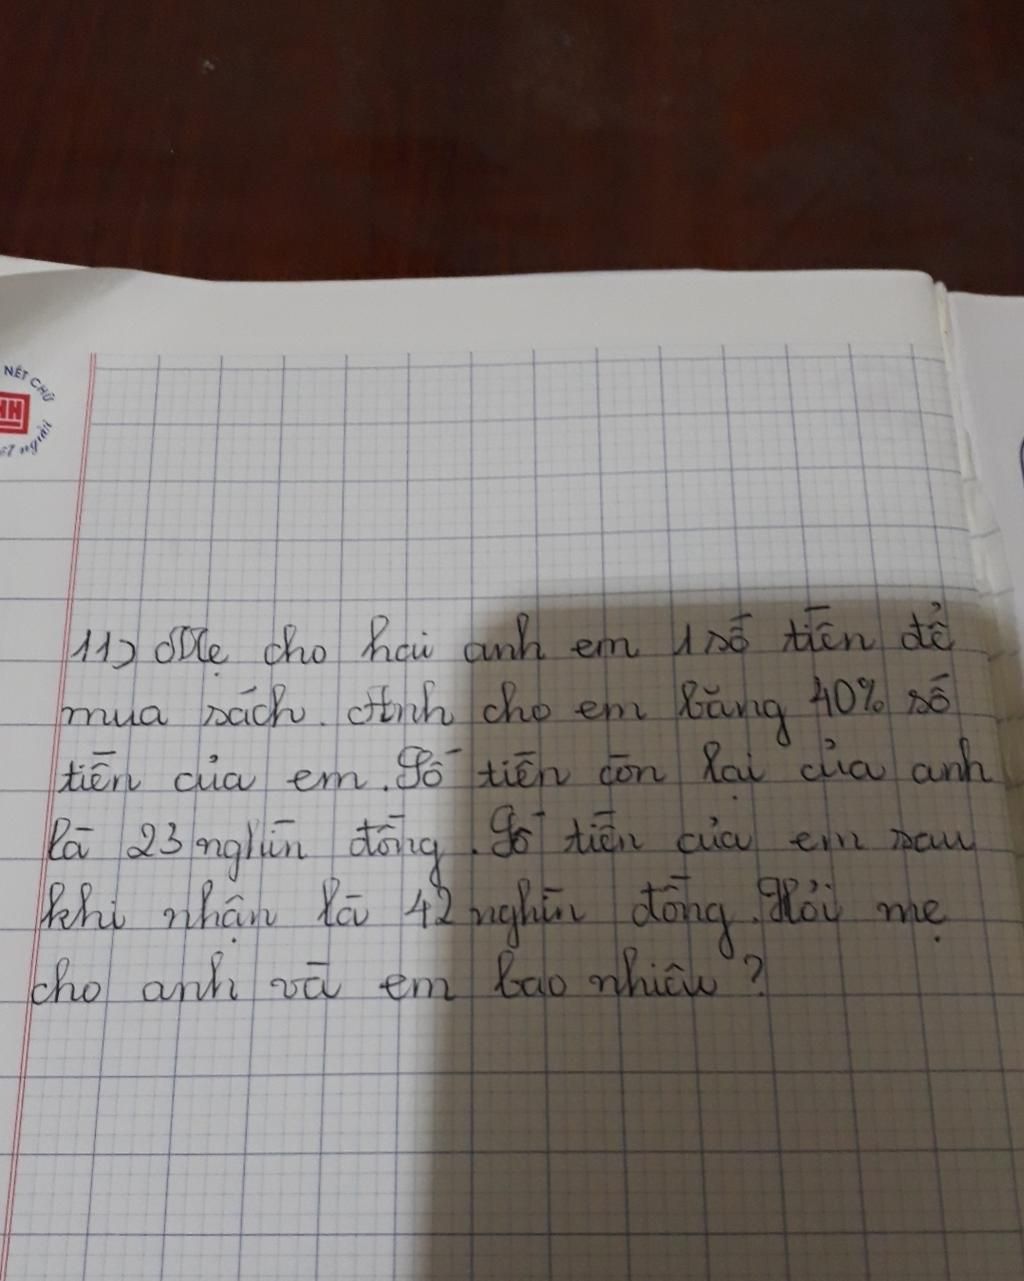 NÉT CHỮ
NH
người
11) Mẹ cho hai anh em 1 số tiền để
mua sách. Anh cho em bằng 40% số
tiền của em. Số tiền còn lại của anh
là 23 nghìn đồng. Số tiền của em sau
khi nhận là 42 nghìn đồng. Hỏi mẹ
cho anh và em bao nhiêu?